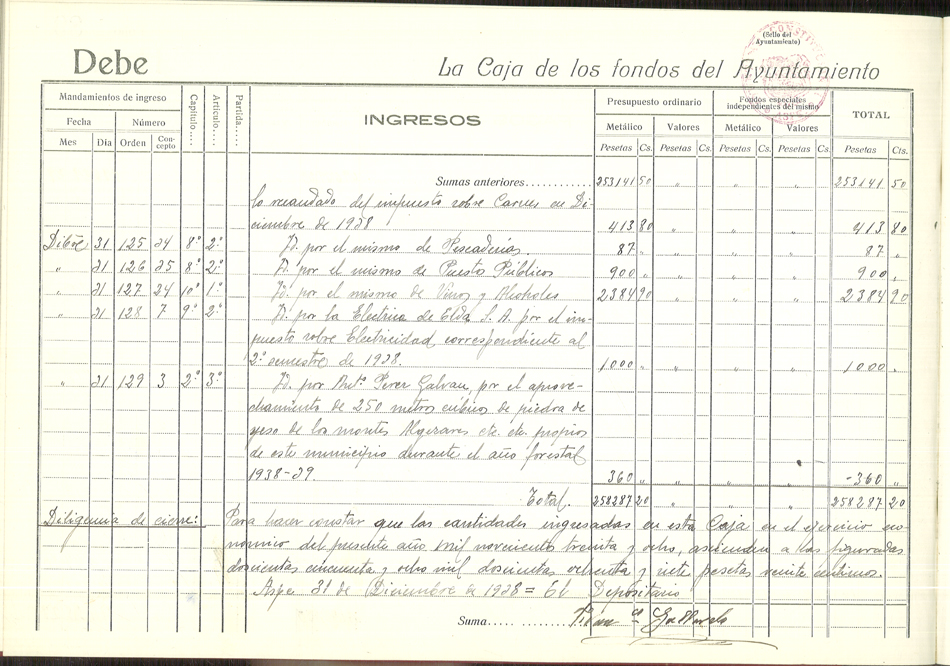 (Sello del Ayuntamiento)
Debe
La Caja de los fondos del Ayuntamiento
Mandamientos de ingreso
Fecha Número
Mes Día Orden Concepto
Capítulo.... Artículo.... Partida....
INGRESOS
Presupuesto ordinario
Metálico Valores
Pesetas Cs. Pesetas Cs.
Fondos especiales independientes del mismo
Metálico Valores
Pesetas Cs. Pesetas Cs.
TOTAL
Pesetas Cts.
Sumas anteriores............ 253141 50 " " " 253141 50
lo recaudado del impuesto sobre Carnes en Di-
ciembre de 1938 413 80 " " " 413 80
Dibre 31 125 24 8º 2º Id. por el mismo de Pescaderías 87 " " " " 87 "
" 31 126 25 8º 2º Id. por el mismo de Puestos Públicos 900 " " " " 900 "
" 31 127 24 10º 1º Id. por el mismo de Vinos y Alcoholes 2384 90 " " " 2384 90
" 31 128 7 9º 2º Id. por la Electrica de Elda S. A. por el im-
puesto sobre Electricidad correspondiente al
2º semestre de 1938. 1000 " " " " 1000 "
" 31 129 3 2º 3º Id. por Antº Perez Galvan, por el aprove-
chamiento de 250 metros cúbicos de piedra de
yeso de los montes Algezares etc. etc. propios
de este municipio durante el año forestal
1938-39. 360 " " " -360 "
Total. 258287 20 " " " 258287 20
Diligencia de cierre: Para hacer constar que las cantidades ingresadas en esta Caja en el ejercicio eco-
nómico del presente año mil novecientos treinta y ocho, ascienden a las figuradas
doscientas cincuenta y ocho mil doscientas ochenta y siete pesetas veinte centimos.
Aspe 31 de Diciembre de 1938 = El Depositario
Suma..... ..........